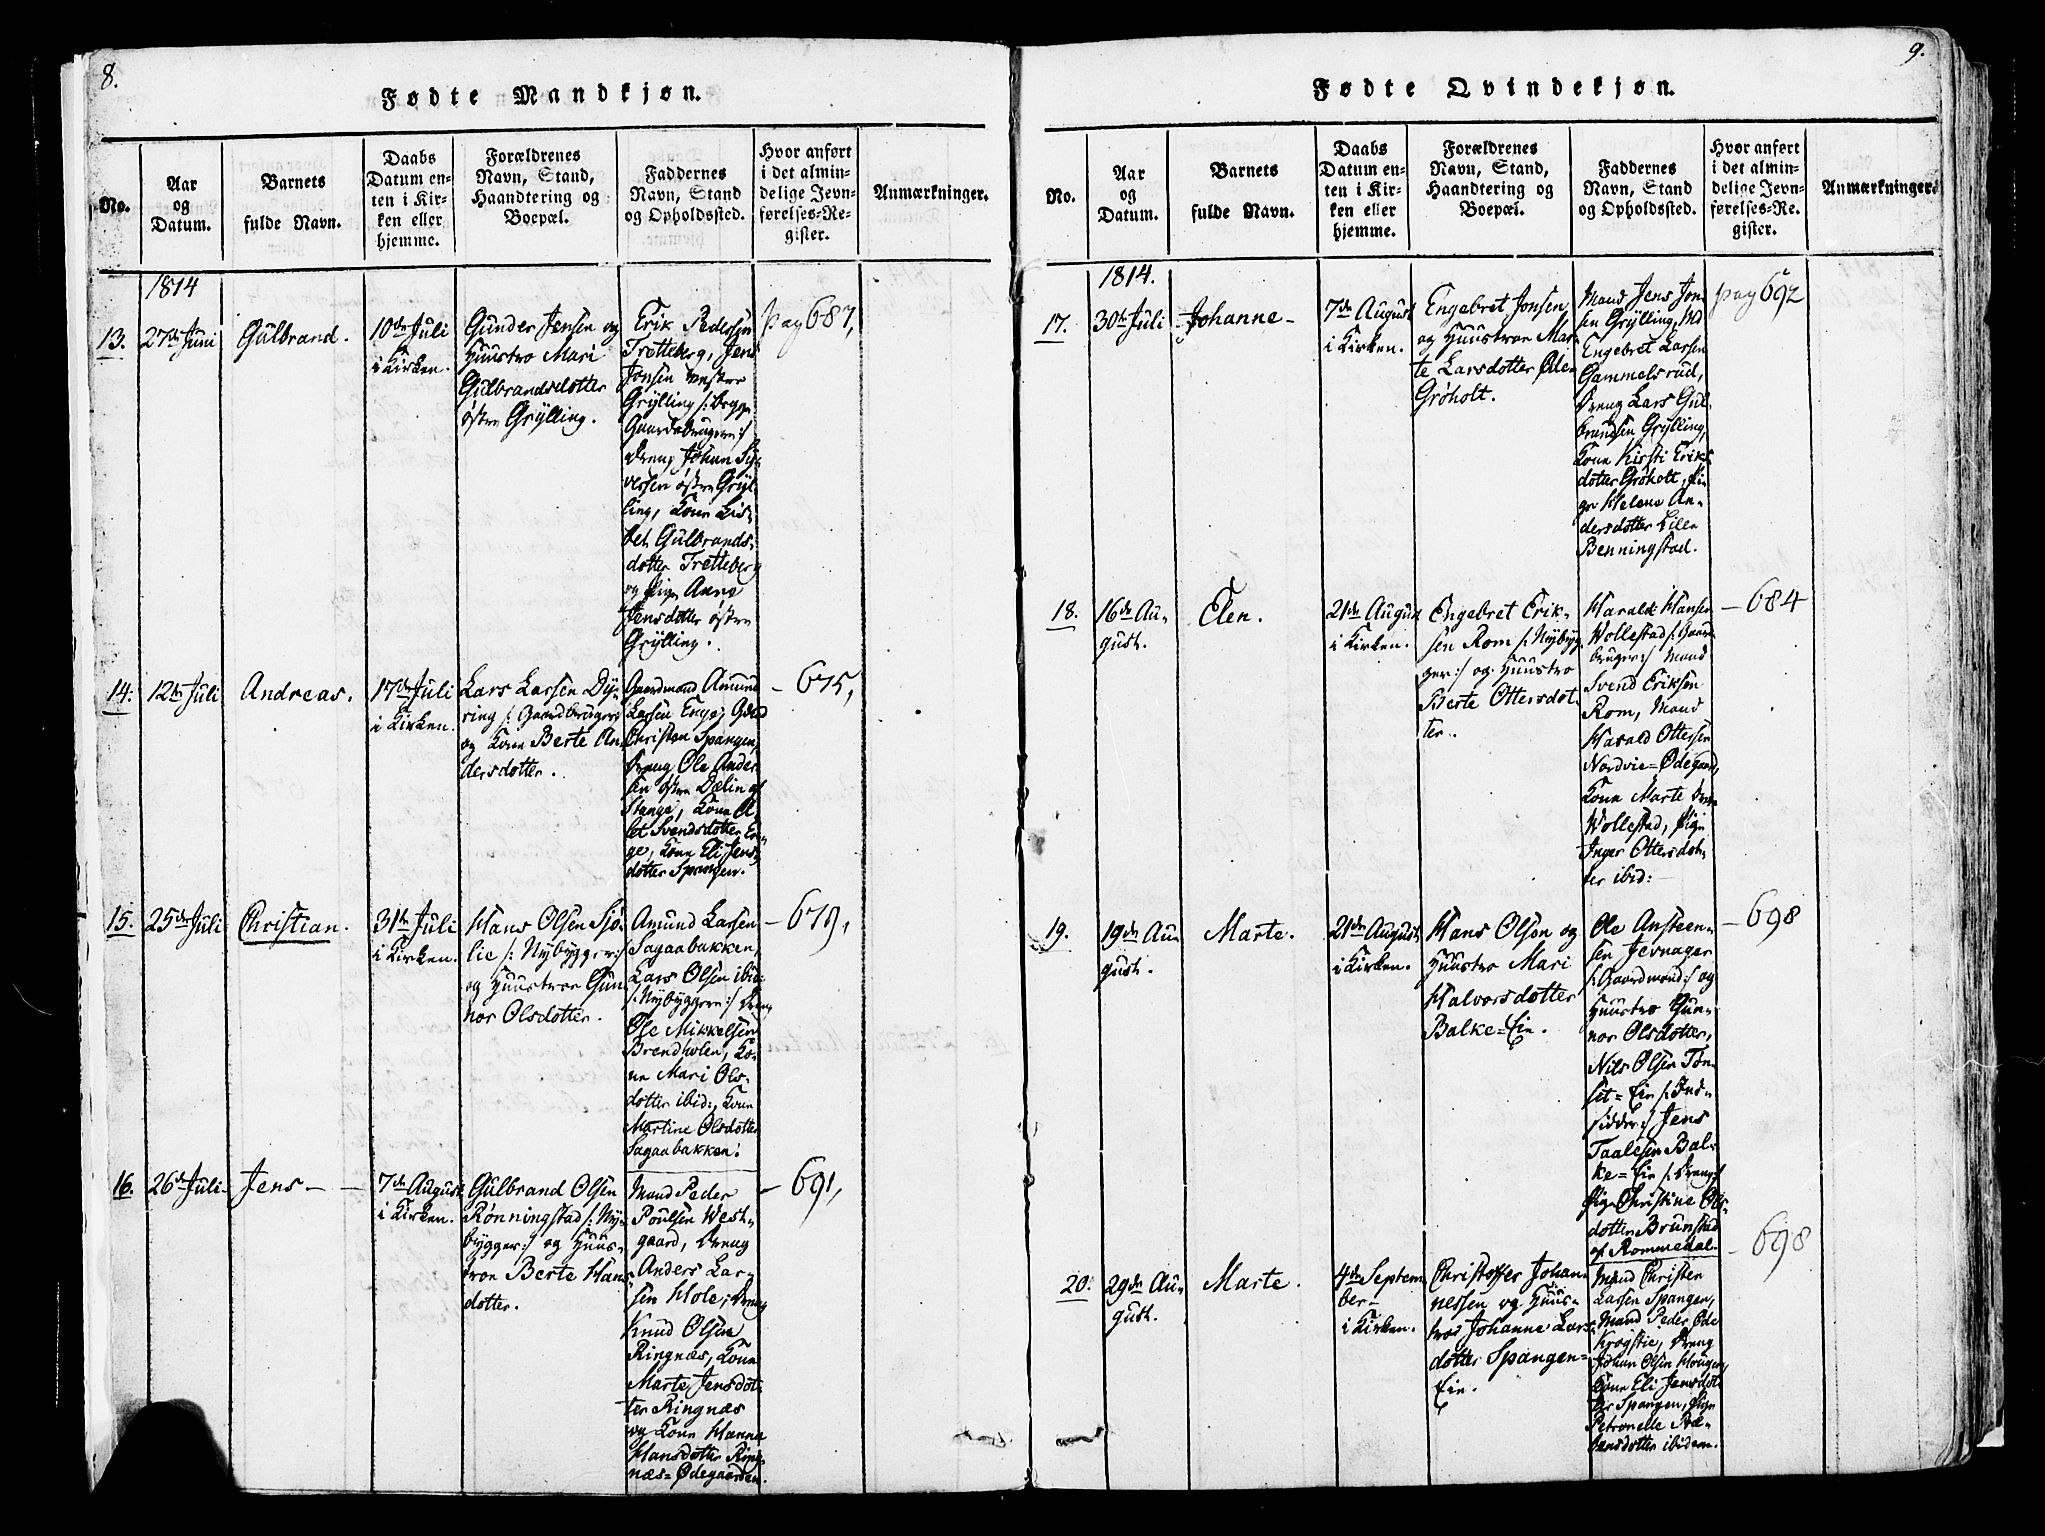 8.
Fødte Mandkjøn.
No.
Aar
og
Datum.
Barnets
fulde Navn.
Daabs
Datum en-
ten i Kir-
ken eller
hjemme.
Forældrenes
Navn, Stand,
Haandtering og
Boepæl.
Faddernes
Navn, Stand
og Opholdssted.
Hvor anført
i det almin-
delige Jevn-
førelses-Re-
gister.
Anmærkninger.
1814
13.
27de Juni
Gulbrand.
10de Juli
i Kirken.
Gunder Jensen og
Huustro Mari
Gulbrandsdotter
østre Grylling.
Erik Pedersen
Tretteberg, Jens
Jonsen vestre
Grylling /: begge
Gaardbrugere :/
Dreng Johan Sy-
versen østre Gryl-
ling, Kone Lis-
bet Gulbrands-
dotter Tretteberg
og Pige Anne
Jensdotter østre
Grylling.
pag 687,
14.
12te Juli
Andreas.
17de Juli
i Kirken.
Lars Larsen Dy-
ring /: Gaardbruger :/
og Kone Berte An-
dersdotter.
Gaardmand Amund
Larsen Enge,
Christen Spangen,
Dreng Ole Ander-
sen østre Dælin af
Stange, Kone
Svendsdotter En-
ge, Kone Eli Jens-
dotter Spangen.
- 675,
15.
25de Juli
Christian.
31te Juli
i Kirken.
Hans Olsen Sjø-
lie /: Nybygger :/
og Huustroe Gun-
nor Olsdotter.
Amund Larsen
Sagaabakken,
Lars Olsen ibid:
/: Nybyggere :/ Dreng
Ole Mikkelsen
Brendholen, Ko-
ne Mari Ols-
dotter ibid:, Kone
Martine Olsdotter
Sagaabakken.
- 679,
16.
26de Juli
Jens -
7de August
i Kirken.
Gulbrand Olsen
Rønningstad /: Ny-
bygger :/ og Huus-
troe Berte Hans-
dotter.
Mand Peder
Poulsen West-
gaard, Dreng
Anders Lar-
sen Hole, Dreng
Knud Olsen
Ringnæs, Kone
Marte Jensdot-
ter Ringnæs
og Kone Hanna
Hansdotter Ring-
næs-Ødegaarden.
- 691,
9.
Fødte Qvindekjøn.
No.
Aar
og
Datum.
Barnets
fulde Navn.
Daabs
Datum en-
ten i Kir-
ken eller
hjemme.
Forældrenes
Navn, Stand,
Haandtering og
Boepæl.
Faddernes
Navn, Stand
og Opholdssted.
Hvor anført
i det almin-
delige Jevn-
førelses-Re-
gister.
Anmærkninger.
1814.
17.
30te Juli
Johanne -
7de August
i Kirken.
Engebret Jonsen
og Huustroe Mar-
te Larsdotter Øde-
Grøholt.
Mand Jens Jon-
sen Grylling, Md
Engebret Larsen
Gammelsrud,
Dreng Lars Gul-
brandsen Grylling,
Kone Kirsti Eriks-
dotter Grøholt, Pi-
ge Helene An-
dersdotter Lille
Benningstad.
pag 692
18.
16de Au-
gust.
Elen.
21de August
i Kirken.
Engebret Erik-
sen Rom /: Nybyg-
ger :/ og Huustro
Berte Ottersdot-
ter.
Harald Hansen
Wollestad /: Gaard-
bruger :/ Mand
Svend Eriksen
Rom, Mand
Harald Ottersen
Nordvie-Ødegaard,
Kone Marte
Wollestad, Pige
Inger Ottersdot-
ter ibid:
- 684
19.
19de Au-
gust.
Marte.
21de August
i Kirken.
Hans Olsen og
Huustro Mari
Halvorsdotter
Balke-Eie.
Ole Ansteen-
sen Jevnager
/: Gaardmand :/ og
Huustro Gun-
nor Olsdotter,
Nils Olsen Tøn-
set-Eie /: Ind-
sidder :/ Jens
Taalesen Bal-
ke-Eie /: Dreng :/
Pige Christine Ols-
dotter Brunstad
af Rommedal.
- 698
20.
29de Au-
gust.
Marte.
4de Septem-
ber -
i Kirken.
Christoffer Johan-
nessen og Huus-
troe Johanne Lars-
dotter Spangen-
Eie.
Mand Christen
Larsen Spangen,
Mand Peder Øde
Krogstie, Dreng
Johan Olsen Hougen,
Kone Eli Jensdot-
ter Spangen, Pige
Petronelle
dotter ibidem.
- 698